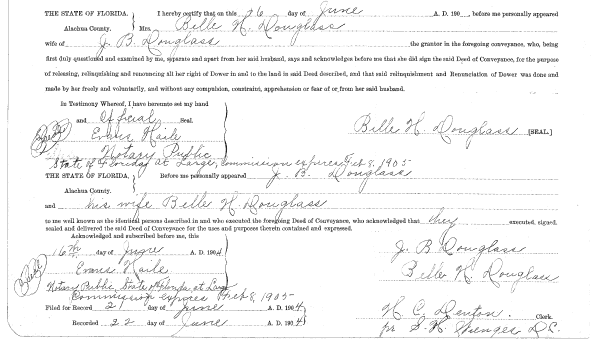 THE STATE OF FLORIDA, I hereby certify that on this 16 day of June A. D. 190 , before me personally appeared
Alachua County. Mrs. Belle H. Douglass
wife of J. B. Douglass the grantor in the foregoing conveyance, who, being
first duly questioned and examined by me, separate and apart from her said husband, says and acknowledges before me that she did sign the said Deed of Conveyance, for the purpose
of releasing, relinquishing and renouncing all her right of Dower in and to the land in said Deed described, and that said relinquishment and Renunciation of Dower was done and
made by her freely and voluntarily, and without any compulsion, constraint, apprehension or fear of or from her said husband.
In Testimony Whereof, I have hereunto set my hand
and Official Seal.
(Seal) Evans Haile
Belle H. Douglass [SEAL]
Notary Public
State of Florida at Large, Commission expires Feb 8, 1905
THE STATE OF FLORIDA, Before me personally appeared J. B. Douglass
Alachua County.
and his wife Belle H. Douglass
to me well known as the identical persons described in and who executed the foregoing Deed of Conveyance, who acknowledged that they executed, signed,
sealed and delivered the said Deed of Conveyance for the uses and purposes therein contained and expressed.
Acknowledged and subscribed before me, this
16th day of June A. D. 1904
J. B Douglass
(Seal) Evans Haile
Belle H. Douglass
Notary Public State of Florida, at Large
Commission expires Feb 8, 1905
Filed for Record 21 day of June A. D. 1904
H. C. Denton, Clerk.
Recorded 22 day of June A. D. 1904
pr S. H. Wienges D.C.